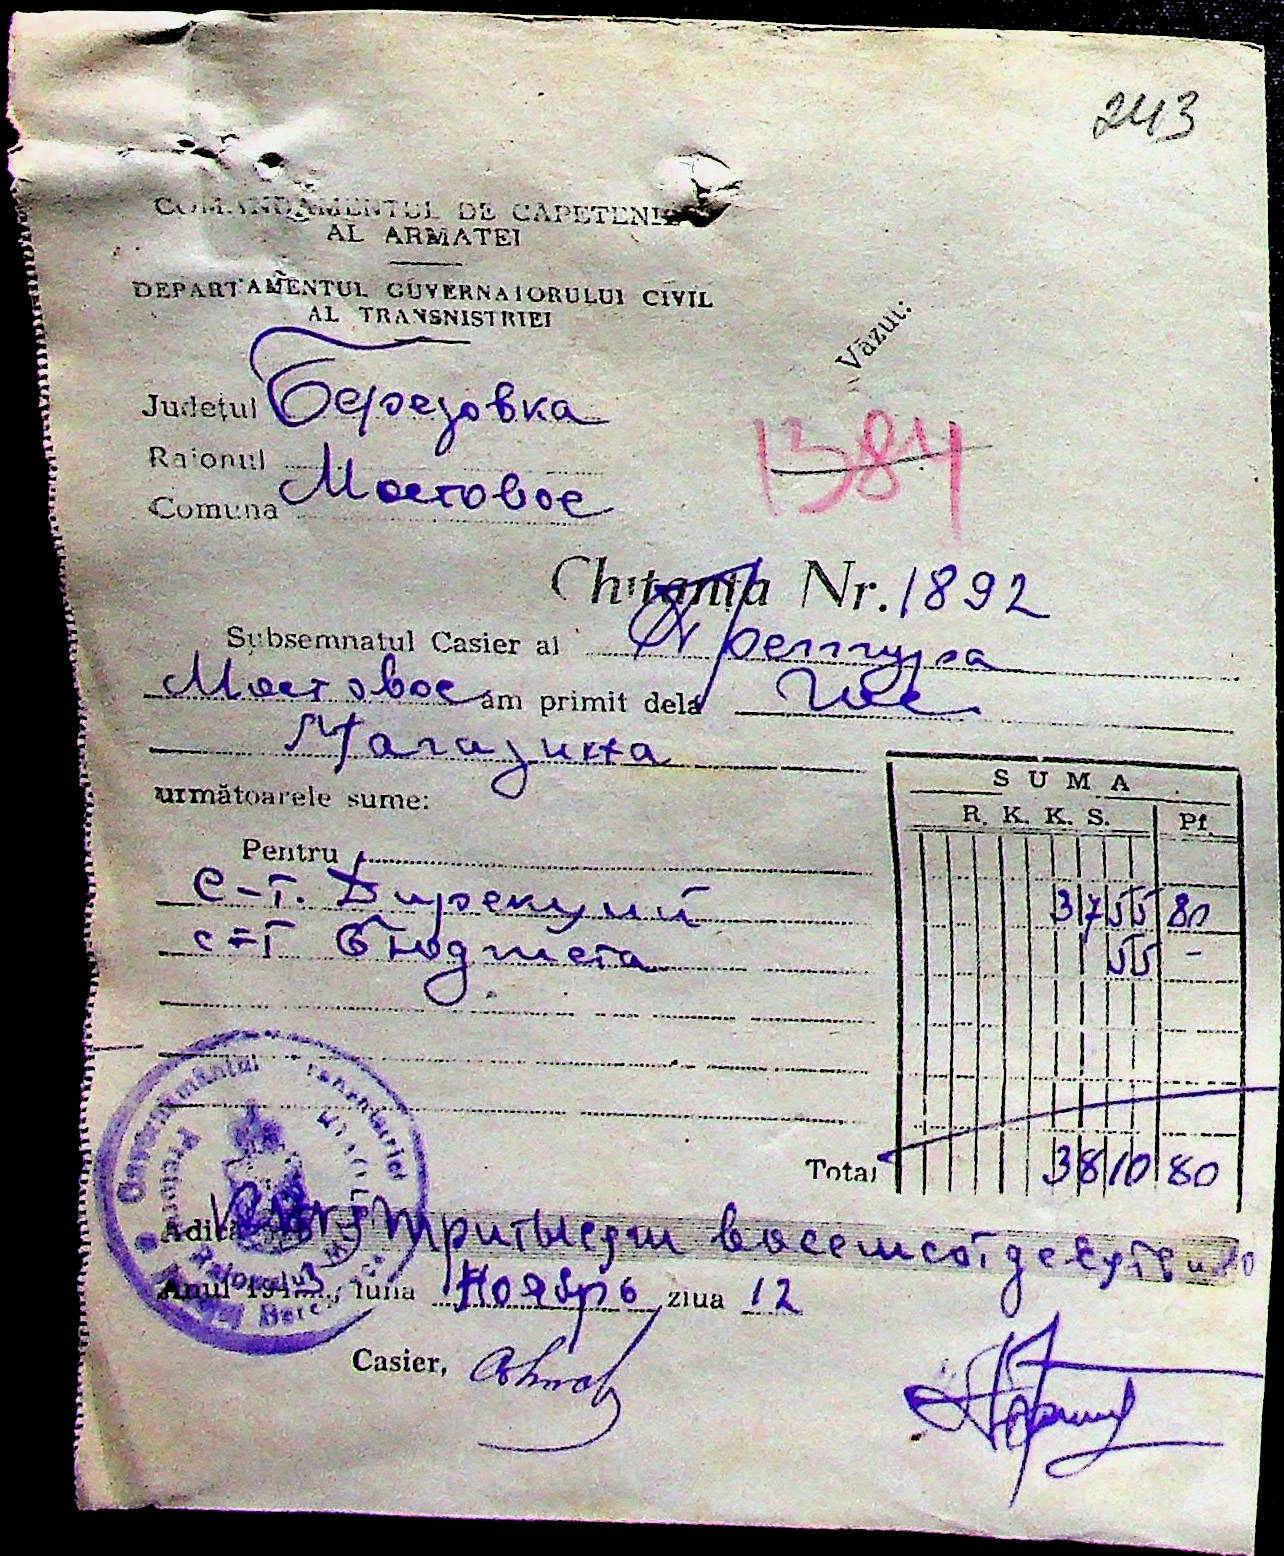 243
COMANDAMENTUL DE CAPETENIE
AL ARMATEI
DEPARTAMENTUL GUVERNATORULUI CIVIL
AL TRANSNISTRIEI
Văzut:
Județul Березовка
Raionul
Comuna Мостовое
1384
Chitanța Nr. 1892
Subsemnatul Casier al Претура
Мостовое am primit dela
Магазина
următoarele sume:
SUMA
R. K. K. S. Pf.
Pentru
С-т. Дирекции 3755 80
с-т бюджета 55 -
Total 3810 80
Guvernământul Transnistriei
Adică три тысящ восемсот десуть
Anul 194 luna Ноябрь ziua 12
Casier,